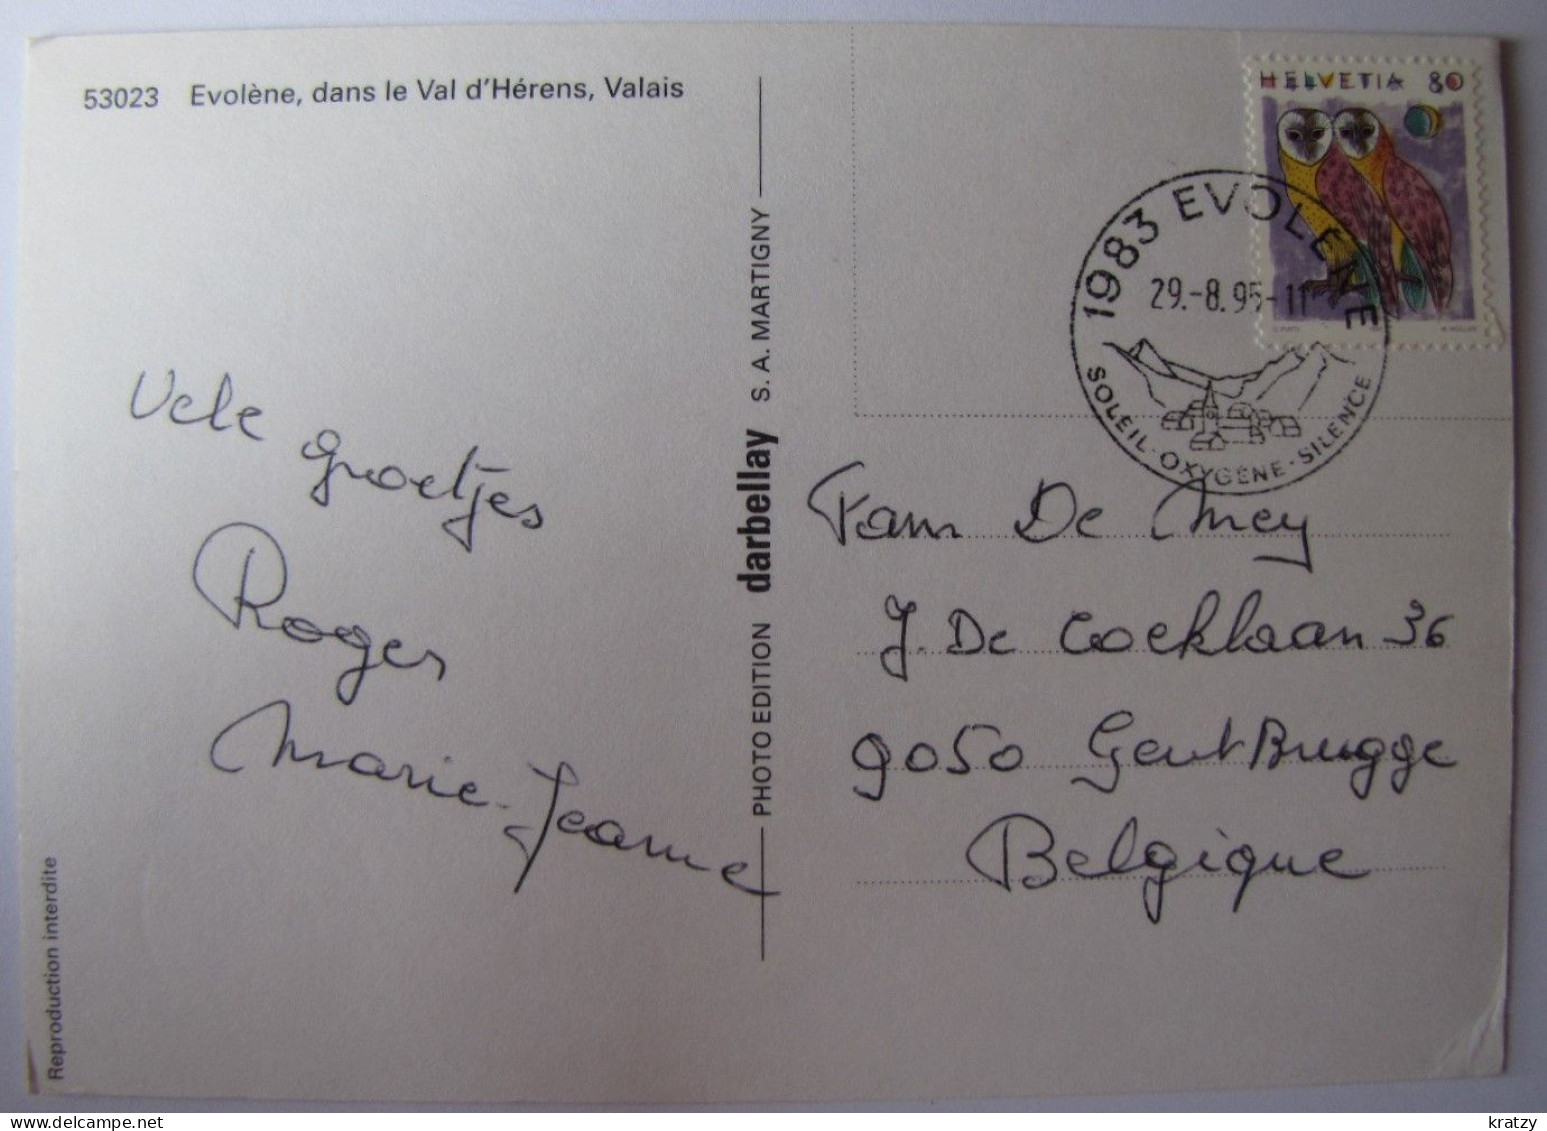 53023 Evolène, dans le Val d'Hérens, Valais
HELVETIA 80
1983 EVOLENE
29.-8.95-11
SOLEIL·OXYGENE·SILENCE
Vele
groetjes
Roger
Marie-Jeanne
PHOTO EDITION darbellay S. A. MARTIGNY
Fam De Mey
J. De Cocklaan 36
9050 GentBrugge
Belgique
Reproduction interdite
kratzy